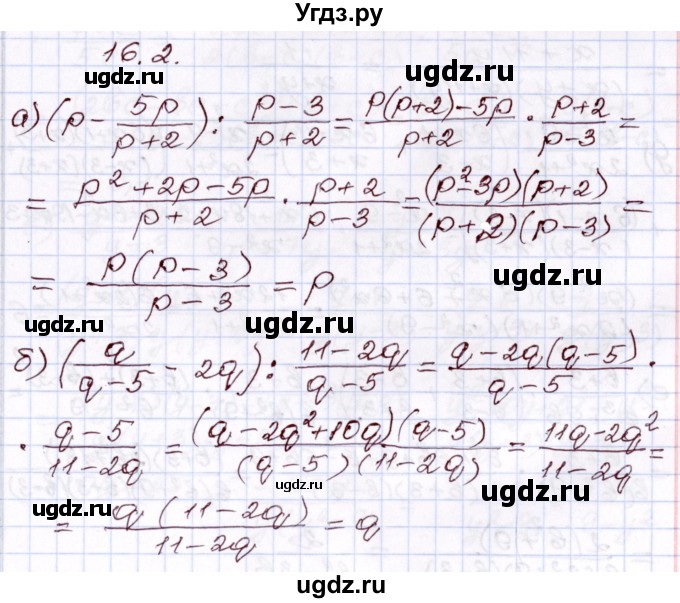 Угдз.ру
16.2.
ugdz.ru ugdz.ru
а) (p - 5p/(p+2)) : (p-3)/(p+2) = (p(p+2)-5p)/(p+2) · (p+2)/(p-3) =
= (p²+2p-5p)/(p+2) · (p+2)/(p-3) = (p²-3p)(p+2)/((p+2)(p-3)) =
ugdz.ru
= p(p-3)/(p-3) = p
ugdz.ru ugdz.ru
б) (q/(q-5) - 2q) : (11-2q)/(q-5) = (q-2q(q-5))/(q-5) ·
· (q-5)/(11-2q) = (q-2q²+10q)(q-5)/((q-5)(11-2q)) = (11q-2q²)/(11-2q) =
ugdz.ru ugdz.ru
ugdz.ru
= q(11-2q)/(11-2q) = q
ugdz.ru